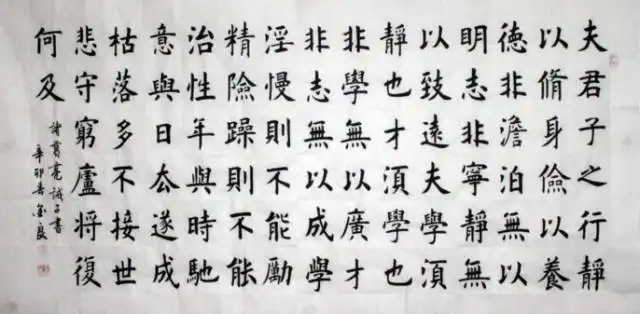 夫君子之行靜
以脩身儉以養
德非澹泊無以
明志非寧靜無
以致遠夫學湏
靜也才湏學也
非學無以廣才
非志無以成學
淫慢則不能勵
精險躁則不能
治性年與時馳
意與日去遂成
枯落多不接世
悲守窮廬將復
何及
諸葛亮誡子書
辛卯春